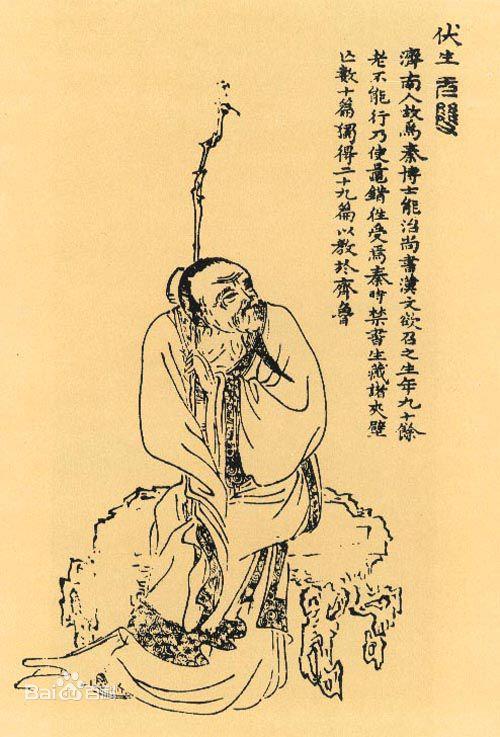 伏生
濟南人故爲秦博士能治尚書漢文欲召之生年九十餘
老不能行乃使鼂錯往受焉秦時禁書生藏諸夾壁
亡數十篇獨得二十九篇以教於齊魯
Bai百科